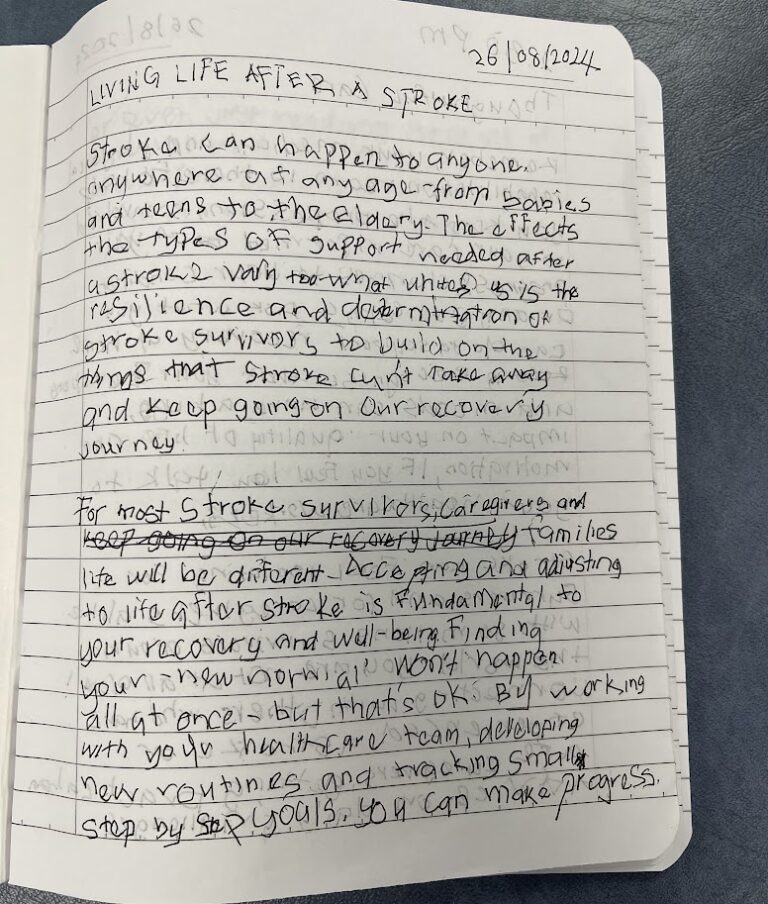 26/08/2024
LIVING LIFE AFTER A STROKE
Stroke can happen to anyone.
anywhere at any age-from babies
and teens to the eldary. The effects
the types OF support needed after
a stroke vary too-what unites us is the
resilience and determination OF
stroke survivors to build on the
things that Stroke cun't Take away
and Keep going on Our recovery
journey.
For most Stroke survivors, caregivers and
keep going on our recovery journey families
life will be different- Accepting and adjusting
to life after stroke is Fundamental to
your recovery and well-being Finding
your -new normal' won't happen
all at once - but that's OK. By working
with your health care team, developing
new routines and tracking small
step by step goals, you can make progress.